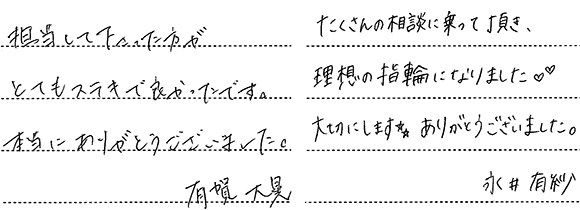 担当して下さった方が
とてもステキで良かったです。
本当にありがとうございました。
有賀 大晃
たくさんの相談に乗って頂き、
理想の指輪になりました♡♡
大切にします☆ ありがとうございました。
永井 有紗